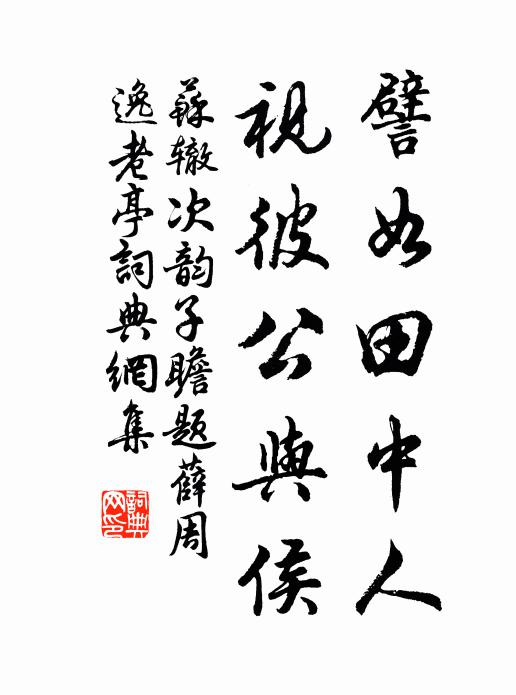 譬如田中人
視彼公與侯
蘇辙次韵子瞻題薛周
逸老亭詞典網集
詞典
网印